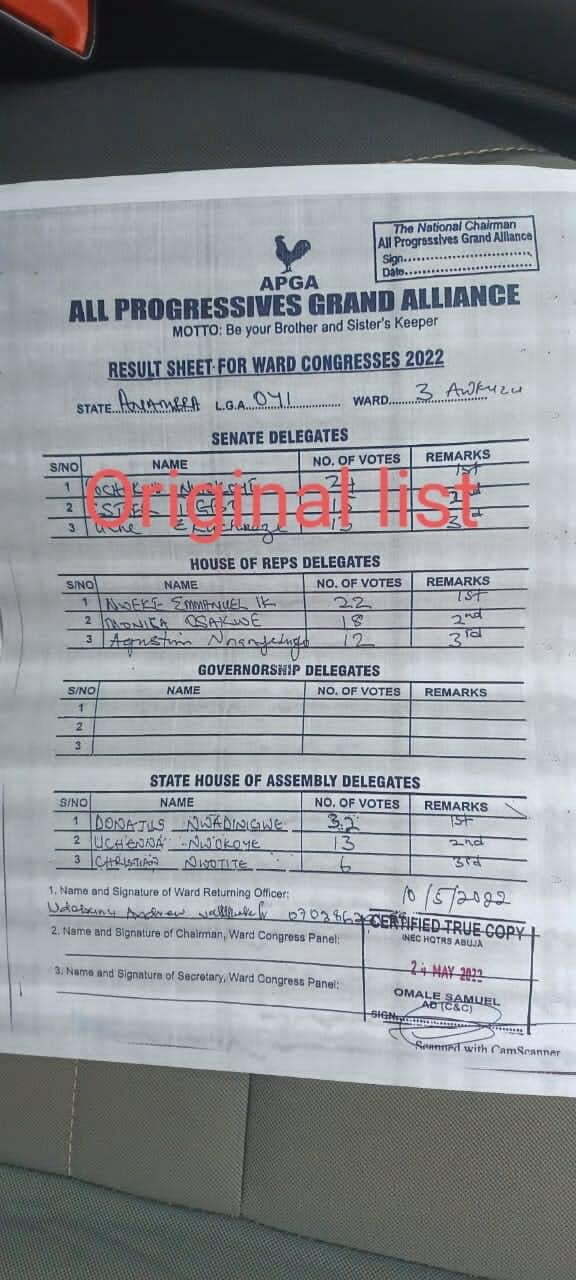 The National Chairman
All Progressives Grand Alliance
Sign..............................
Date..............................
APGA
ALL PROGRESSIVES GRAND ALLIANCE
MOTTO: Be your Brother and Sister's Keeper
RESULT SHEET FOR WARD CONGRESSES 2022
STATE. ANAMBRA L.G.A. OYI WARD. 3 AWKUZU
SENATE DELEGATES
S/NO NAME NO. OF VOTES REMARKS
1 1st
2 2nd
3 3rd
Original list
HOUSE OF REPS DELEGATES
S/NO NAME NO. OF VOTES REMARKS
1 NWEKE EMMANUEL IK 22 1st
2 MONICA OSAKWE 18 2nd
3 12 3rd
GOVERNORSHIP DELEGATES
S/NO NAME NO. OF VOTES REMARKS
1
2
3
STATE HOUSE OF ASSEMBLY DELEGATES
S/NO NAME NO. OF VOTES REMARKS
1 DONATUS NWADINIGWE 32 1st
2 UCHENNA NWOKOYE 13 2nd
3 CHRISTIAN NWOTITE 6 3rd
1. Name and Signature of Ward Returning Officer: 10/5/2022
Andrew
2. Name and Signature of Chairman, Ward Congress Panel:
3. Name and Signature of Secretary, Ward Congress Panel:
CERTIFIED TRUE COPY
INEC HQTRS ABUJA
24 MAY 2022
OMALE SAMUEL
AD (C&C)
SIGN..............................
Scanned with CamScanner